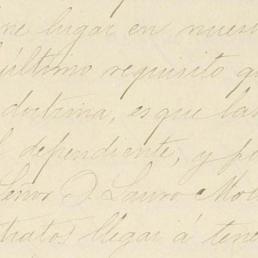 ne lugar en nuest
último requisito q
doctrina, es que las
l dependiente, y p
Señor D. Lauro Mo
tratos llegar á tene